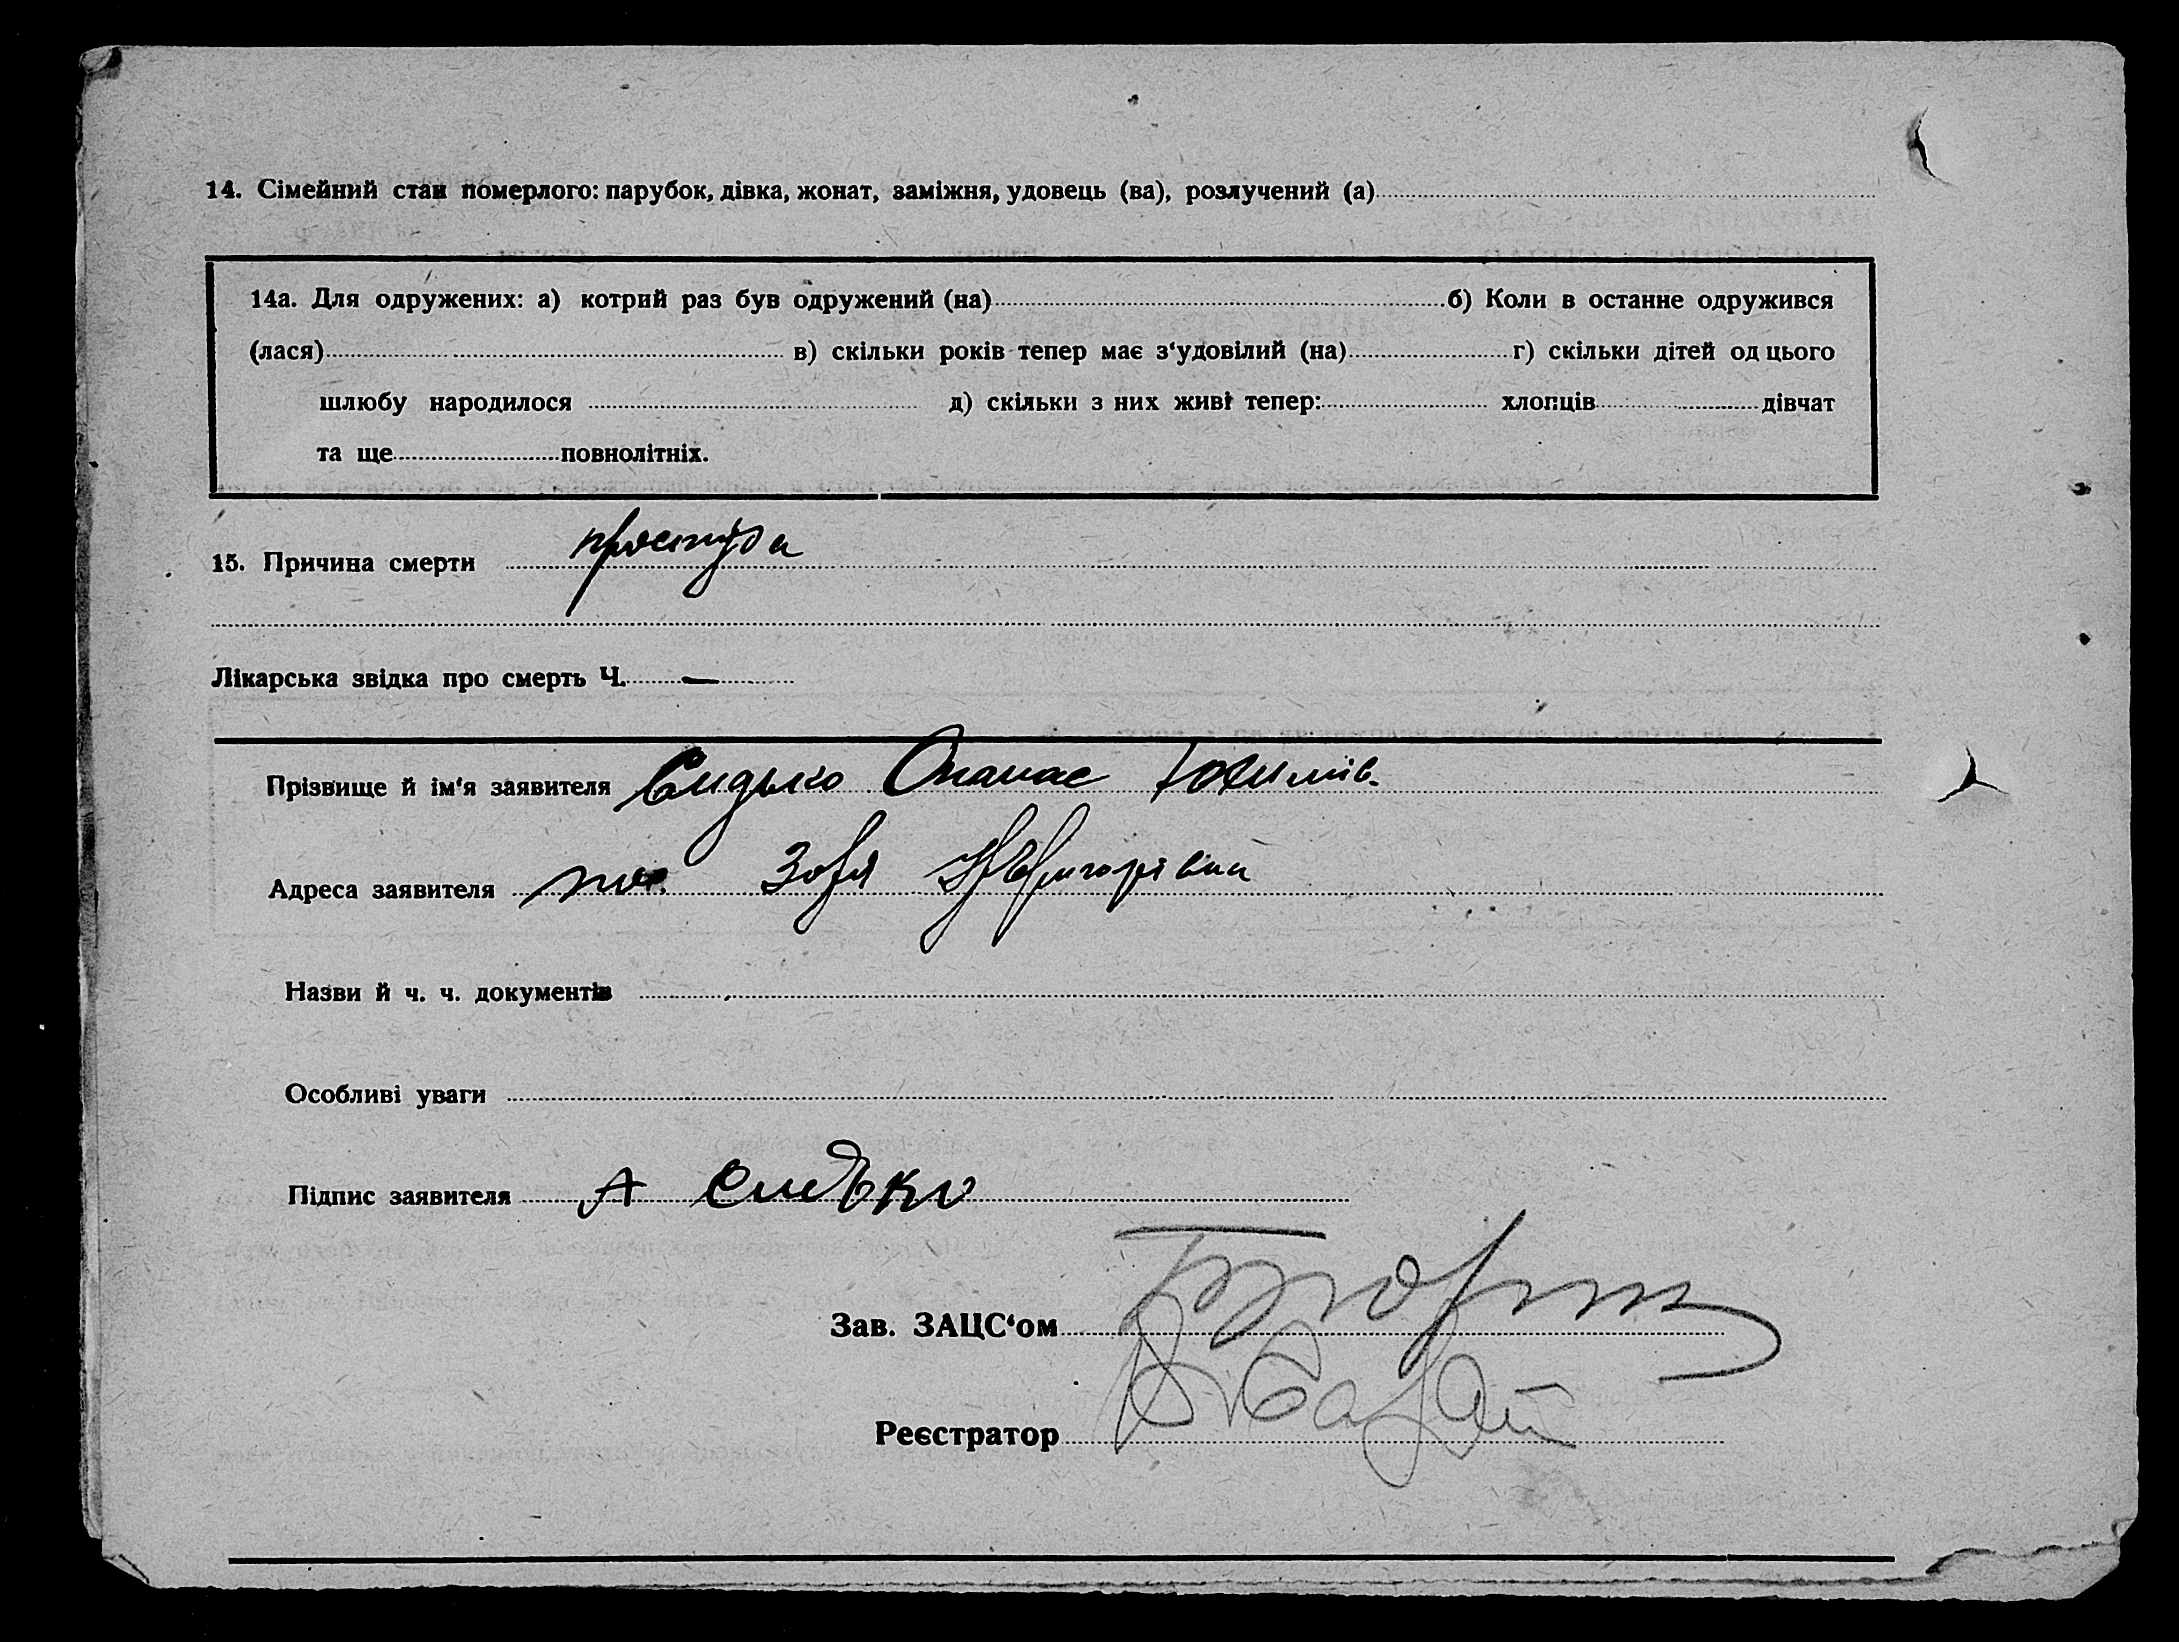 14. Сімейний стан померлого: парубок, дівка, жонат, заміжня, удовець (ва), розлучений (а)
14а. Для одружених: а) котрий раз був одружений (на) б) Коли в останне одружився
(лася) в) скільки років тепер має з‘удовілий (на) г) скільки дітей од цього
шлюбу народилося д) скільки з них живі тепер: хлопців дівчат
та ще повнолітніх.
15. Причина смерти простуда
Лікарська звідка про смерть Ч. —
Прізвище й ім‘я заявителя Сидько Опанас Юхимів.
Адреса заявителя Зоря
Назви й ч. ч. документів
Особливі уваги
Підпис заявителя А Сидько
Зав. ЗАЦС‘ом
Реєстратор